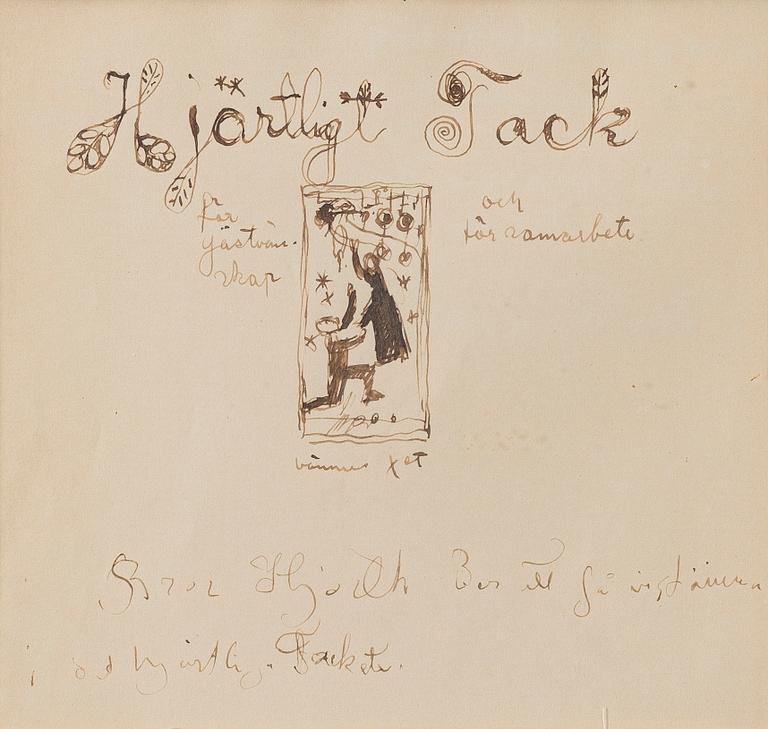 Hjärtligt Tack
för
gästvän-
skap
och
för samarbete
Bror Hjorth Ber att få instämma
i det hjärtlig. Tacket.